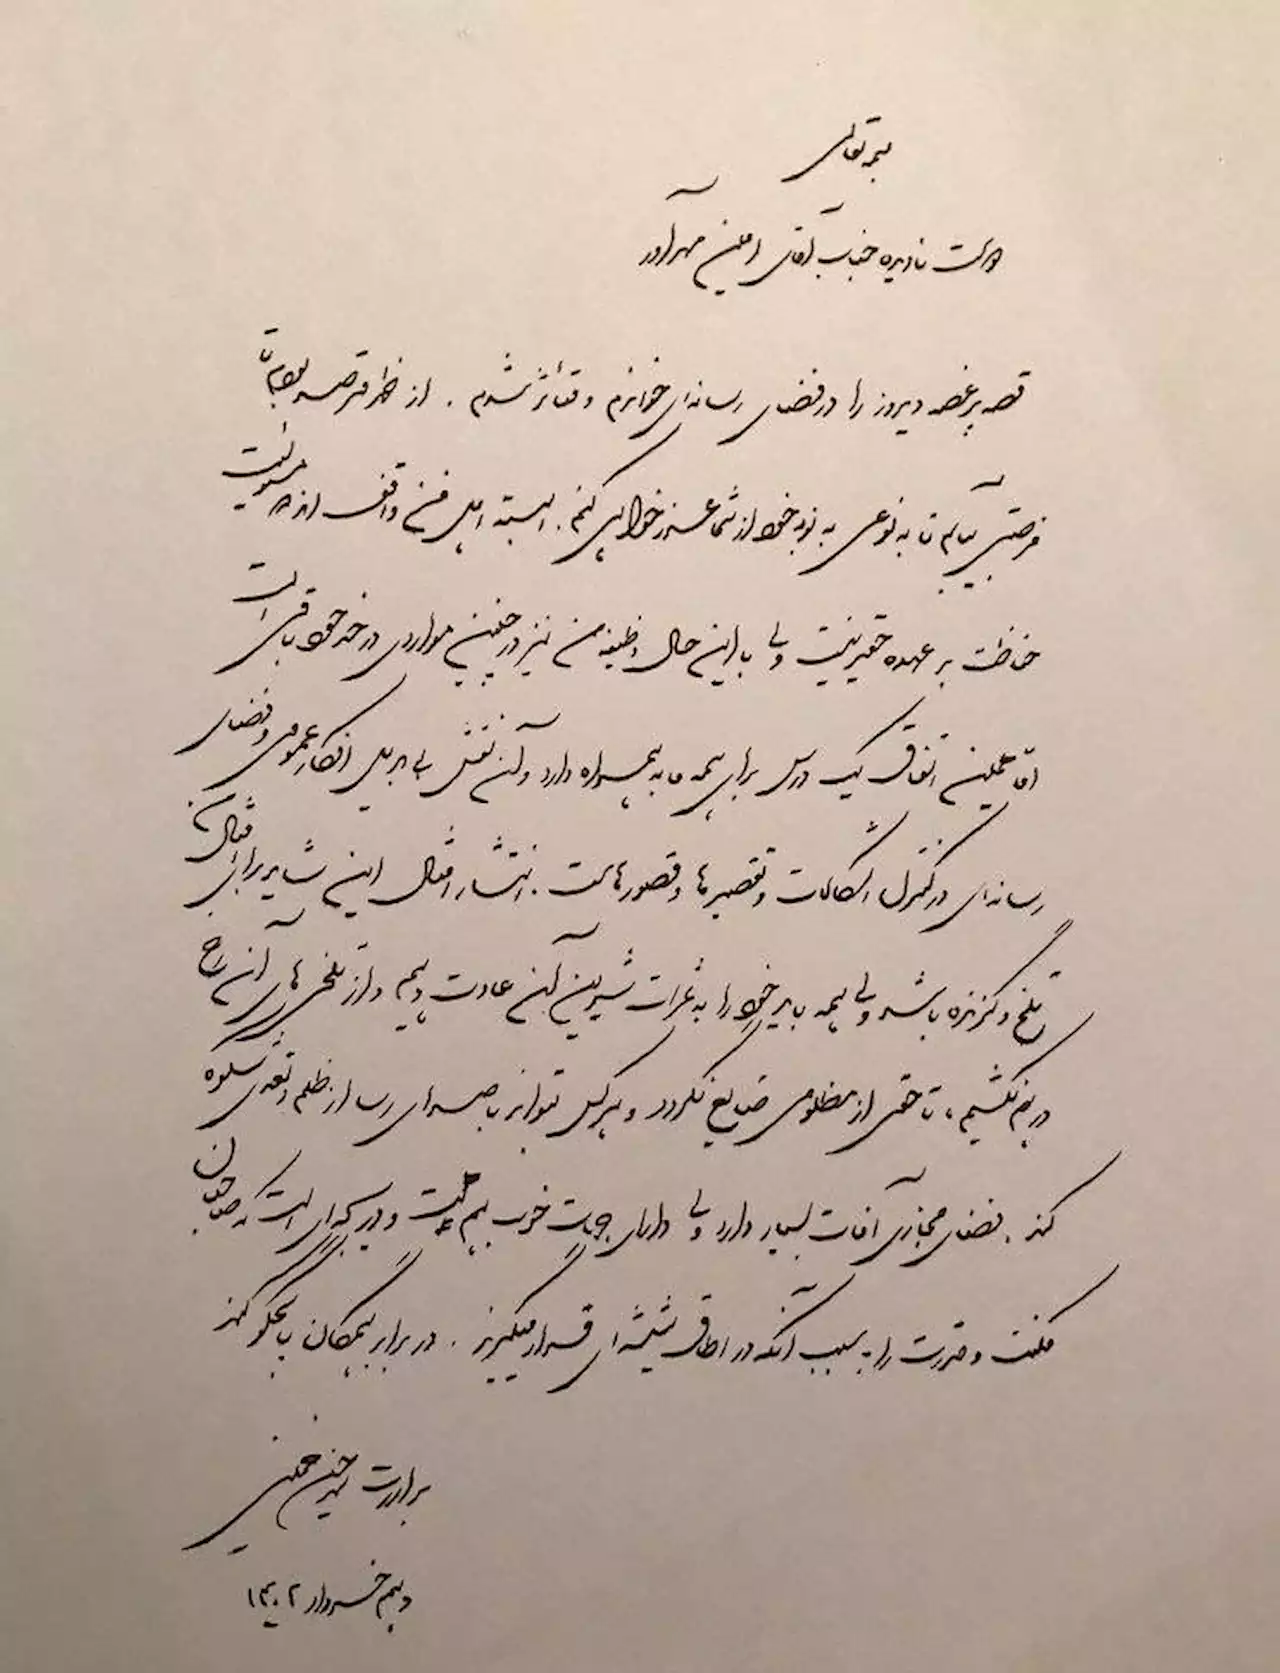 بسمه تعالی
دوست نادیده جناب آقای امین مهرآور
قصه پر غصه دیروز را در فضای رسانه‌ای خواندم و متأثر شدم. از ظهر مترصد بودم تا
فرصتی بیابم تا به نوعی به نوبه خود از شما عذرخواهی کنم. البته اهل فن واقف‌اند مسئولیت
حفاظت بر عهده حقیر نیست ولی با این حال وظیفه من نیز در چنین مواردی در حد خود باقی است
اما همین اتفاق یک درس برای همه ما به همراه دارد و آن نقش بی بدیل افکار عمومی و فضای
رسانه‌ای در کنترل اشکالات و تقصیرها و قصورهاست. انتشار امثال این شاید برای امثال من
تلخ و گزنده باشد ولی همه باید خود را به ثمرات شیرین آن عادت دهیم و از تلخی های آن رخ
درهم نکشیم، تا حقی از مظلومی ضایع نگردد و هر کس بتواند با صدای رسا از ظلم و تعدی شکوه
کند. فضای مجازی آفات بسیار دارد ولی دارای جهات خوب هم هست و دریچه‌ای است که صاحبان
مکنت و قدرت را به سبب آنکه در اطاق شیشه ای قرار میگیرند. در برابر همگان پاسخگو کند
برادرت سید حسن خمینی
دهم خرداد ۱۴۰۲